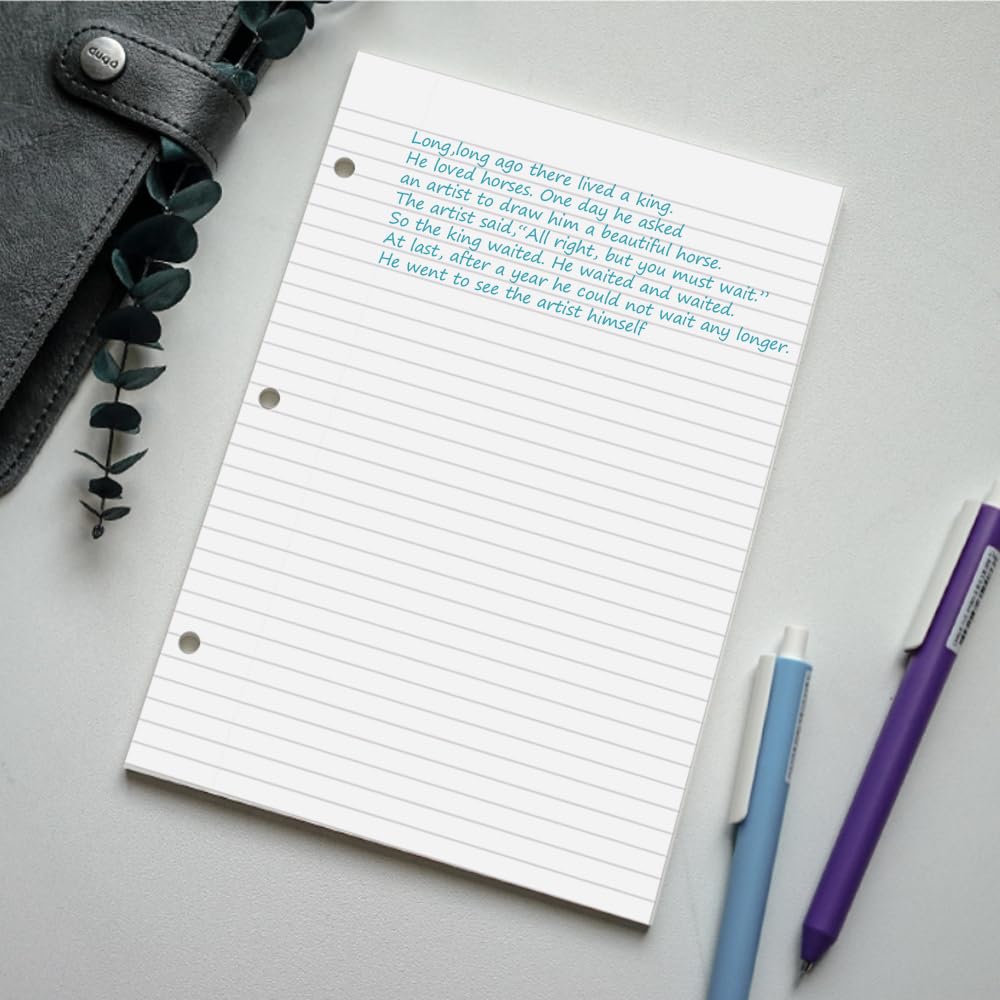 duqd
Long,long ago there lived a king.
He loved horses. One day he asked
an artist to draw him a beautiful horse.
The artist said,“All right, but you must wait.”
So the king waited. He waited and waited.
At last, after a year he could not wait any longer.
He went to see the artist himself